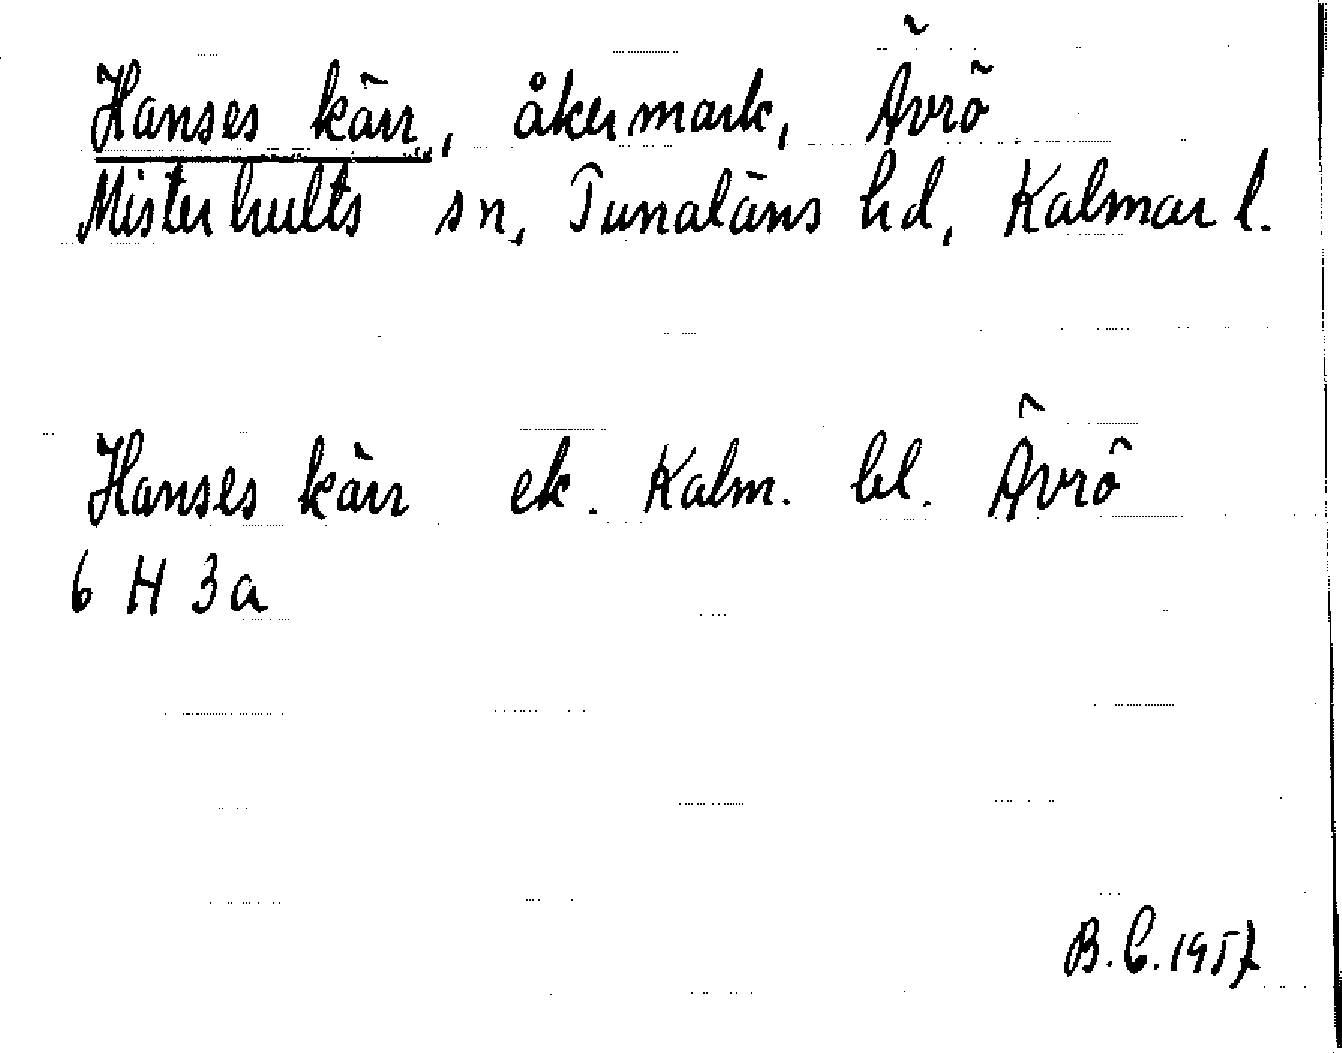 Hanses kärr, åkermark, Ävrö
Misterhults sn, Tunaläns hd, Kalmar l.
Hanses kärr ek. Kalm. bl. Ävrö
6 H 3a
B.C. 1957